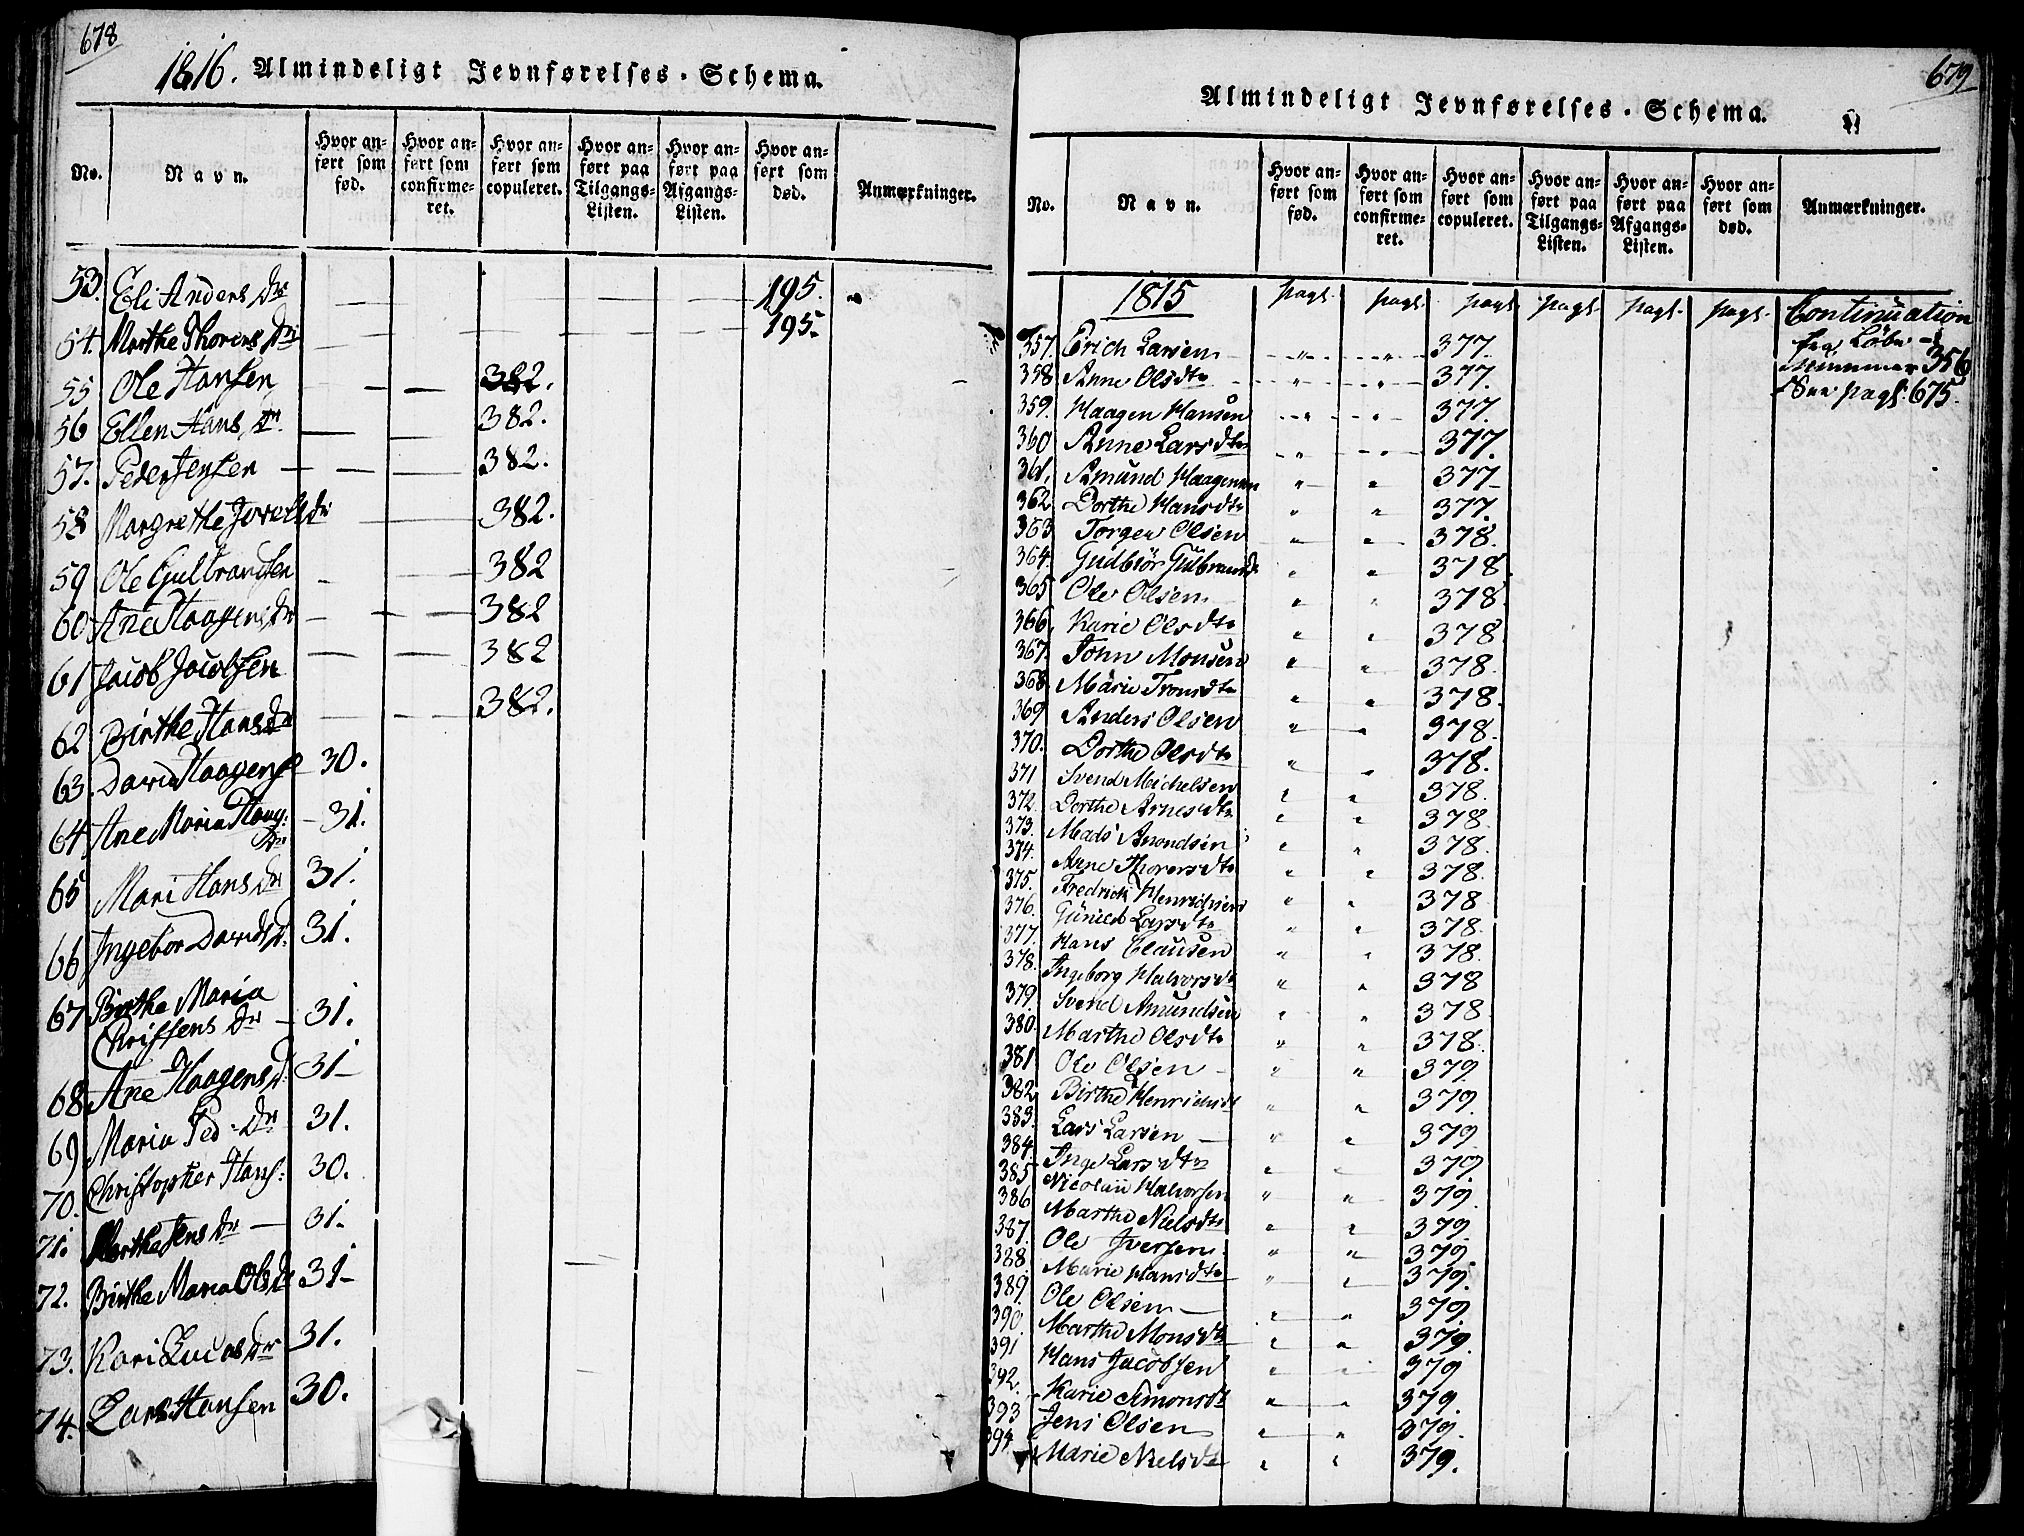 678
1816. Almindeligt Jevnførelses-Schema.
No. Navn. Hvor anført som fød. Hvor anført som confirmeret. Hvor anført som copuleret. Hvor anført paa Tilgangs-Listen. Hvor anført paa Afgangs-Listen. Hvor anført som død. Anmærkninger.
53. Eli Anders Dr 195.
54. Marthe Thorers Dr 195.
55 Ole Hansen 382.
56 Ellen Hans Dr. 382.
57. Peder Jensen 382.
58 Margrethe Dr 382.
59 Ole Gulbrandsen 382
60 Ane Haagens Dr 382
61 Jacob Jacobsen 382
62 Birthe Hans Dr 382.
63. David Haagens 30.
64 Ane Maria Haag: 31.
Dr
65 Mari Hans Dr 31.
66 Ingebor Davids D. 31.
67 Birthe Maria
Christens Dr 31.
68 Ane Haagens D. 31
69 Maria Ped. Dr 31.
70. Christopher Hans: 30.
71. Marthe Jens Dr 31.
72. Birthe Maria Ols Dr 31
73. Kari Lucas Dr 31.
74. Lars Hansen 30.
679
Almindeligt Jevnførelses-Schema.
No. Navn. Hvor anført som fød. Hvor anført som confirmeret. Hvor anført som copuleret. Hvor anført paa Tilgangs-Listen. Hvor anført paa Afgangs-Listen. Hvor anført som død. Anmærkninger.
1815 pag. pag. pag. pag. pag. pag. Continuation
fra Löbe-
357. Erich Larsen " " 377. nummer 356
358 Anne Olsdtr " " 377. See pag. 675.
359. Haagen Hansen " " 377.
360 Anne Larsdtr " " 377.
361. Amund Haagensen " " 377
362 Dorthe Hansdtr " " 377.
363 Torger Olsen " " 378.
364. Gudbiör Gulbrandsd. " " 378
365 Ole Olsen " " 378
366. Karie Olsdtr " " 378
367. John Monsen " " 378.
368 Marie Tronsdtr " " 378.
369 Anders Olsen " " 378.
370. Dorthe Olsdtr " " 378.
371 Svend Michelsen " " 378.
372. Dorthe Arnesdtr. " " 378.
373. Mads Amondsen " " 378.
374. Anne Thorersdtr " " 378.
375. Fredrich Henrichsen " " 378
376. Gunild Larsdtr " " 378.
377. Hans Clausen " " 378.
378. Ingeborg Halvorsdtr " " 378
379. Svend Amundsen " " 378
380. Marthe Olsdtr " " 378.
381 Ole Olsen " " 379
382 Birthe Henrichsdtr " " 379.
383. Lars Larsen " " 379
384. Inge Larsdtr " " 379
385 Nicolaii Halvorsen " " 379.
386 Marthe Nielsdtr " " 379.
387. Ole Iversen " " 379.
388 Marie Hansdtr " " 379.
389. Ole Olsen " " 379.
390. Marthe Monsdtr " " 379.
391 Hans Jacobsen " " 379
392. Karie Simonsdt " " 379.
393 Jens Olsen " " 379.
394. Marie Nielsdtr " " 379.